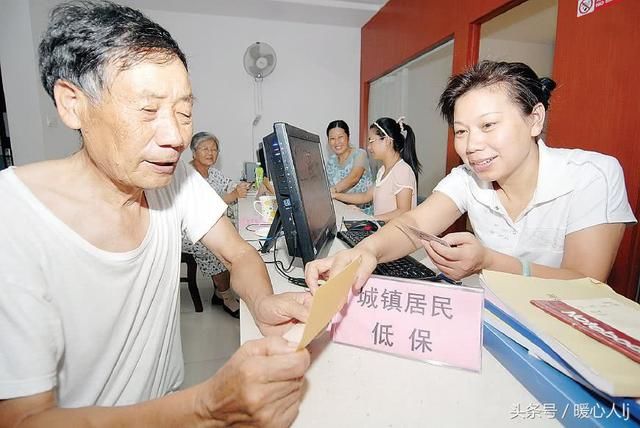 城镇居民
低保
Notebook
头条号/暖心人lj